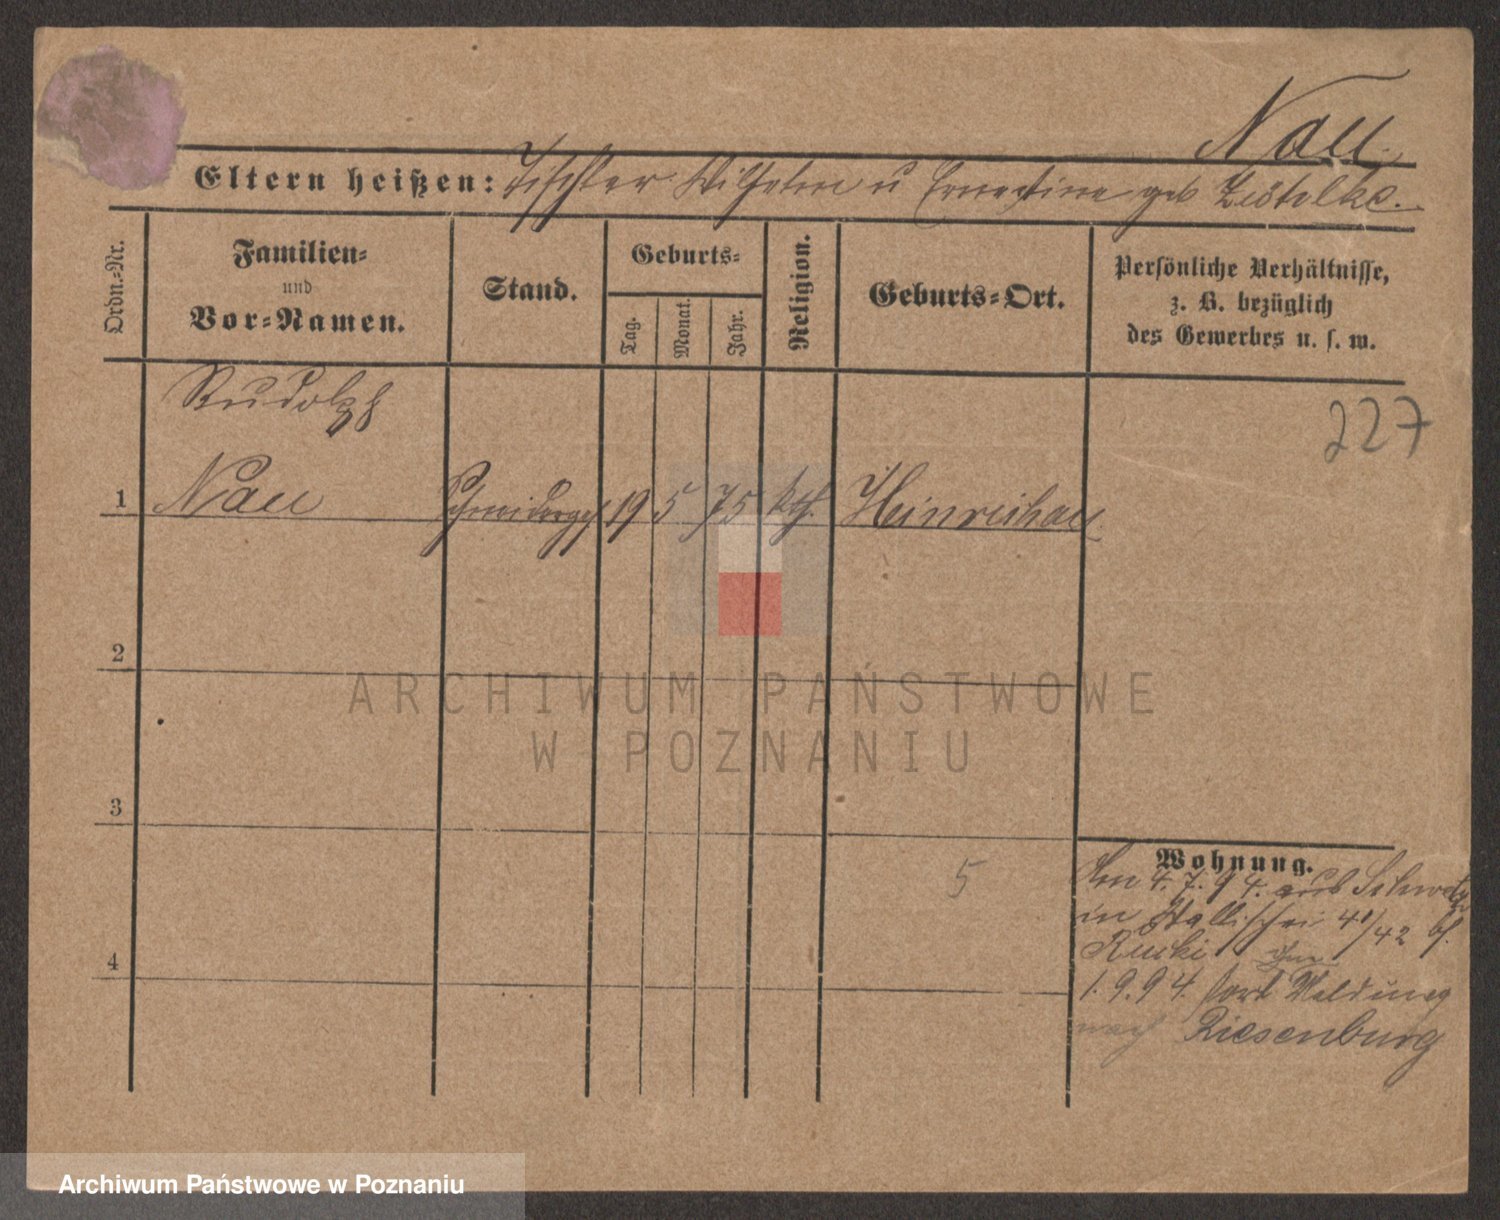 Nau.
Eltern heißen: Tischler Wilhelm u Ernestine geb
Ordn.=Nr.
Familien=
und
Vor=Namen.
Stand.
Geburts=
Tag.
Monat.
Jahr.
Religion.
Geburts=Ort.
Persönliche Verhältnisse,
z. B. bezüglich
des Gewerbes u. s. w.
Rudolph
227
1 Nau Schneiderges 19 5 75 kth. Heinrichau
2
ARCHIWUM PAŃSTWOWE
W POZNANIU
3
Wohnung.
5
Am 4.7.94. aus Schwetz
in Wallischei 41/42 bf.
4
1.9.94. fort Meldung
nach Riesenburg
Archiwum Państwowe w Poznaniu